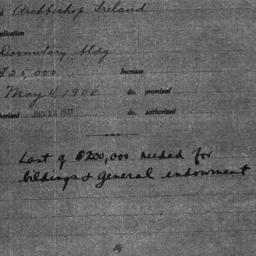 Archbishop Ireland
plication
Dormitory bldg
$25,000 Increase
May 8, 1908 do. promised
horized JUN 12 1911 do. authorized
Last of $200,000 needed for
bildings & general endowment